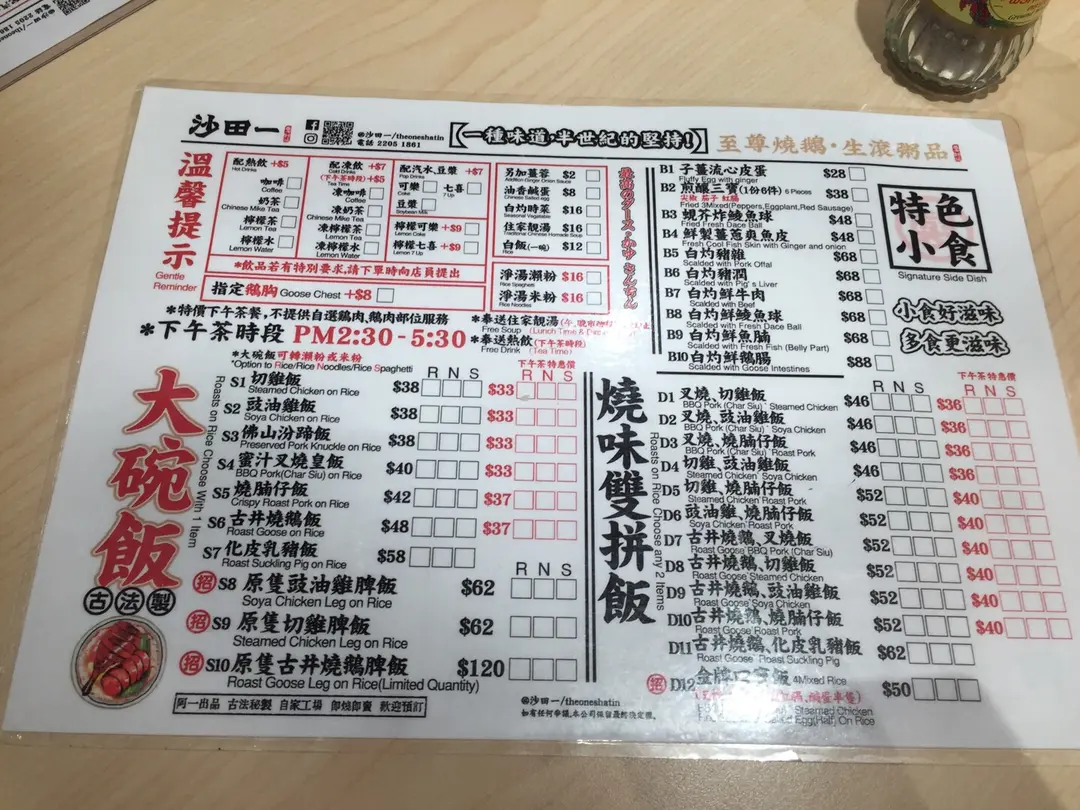 沙田一
@沙田一/theoneshatin
電話 2205 1861
【一種味道·半世紀的堅持!】
至尊燒鵝·生滾粥品
溫馨提示
Gentle Reminder
配熱飲 +$5
Hot Drinks
咖啡
Coffee
奶茶
Chinese Mike Tea
檸檬茶
Lemon Tea
檸檬水
Lemon Water
配凍飲 +$7
Cold Drinks
(下午茶時段)+$5
Tea Time
凍咖啡
Coffee
凍奶茶
Chinese Mike Tea
凍檸檬茶
Lemon Tea
凍檸檬水
Lemon Water
配汽水,豆漿 +$7
Pop Drinks
可樂
Coke
七喜
7 Up
豆漿
Soybean Milk
檸檬可樂 +$9
Lemon Coke
檸檬七喜 +$9
Lemon 7 Up
*飲品若有特別要求,請下單時向店員提出
指定鵝胸 Goose Chest +$8
另加薑蓉 $2
Addition Ginger Onion Sauce
油香鹹蛋 $8
Chinese Salted egg
白灼時菜 $16
Seasonal Vegetables
住家靚湯 $16
Traditional Chinese Homade Soup
白飯(一碗) $12
Rice
淨湯瀨粉 $16
Rice Spaghetti
淨湯米粉 $16
Rice Noodles
*特價下午茶餐,不提供自選鷄肉,鵝肉部位服務
*下午茶時段 PM2:30-5:30
*奉送住家靚湯
Free Soup
*奉送熱飲(下午茶時段)
Free Drink (Tea Time)
B1 子薑流心皮蛋 $28
Fluffy Egg with ginger
B2 煎釀三寶(1份6件) 6 Pieces $38
尖椒 茄子 紅腸
Fried 3Mixed(Peppers,Eggplant,Red Sausage)
B3 蜆芥炸鯪魚球 $48
Fried Fresh Dace Ball
B4 鮮製薑蔥爽魚皮 $48
Fresh Cool Fish Skin with Ginger and onion
B5 白灼豬雜 $68
Scalded with Pork Offal
B6 白灼豬潤 $68
Scalded with Pig's Liver
B7 白灼鮮牛肉 $68
Scalded with Beef
B8 白灼鮮鯪魚球 $68
Scalded with Fresh Dace Ball
B9 白灼鮮魚腩 $68
Scalded with Fresh Fish (Belly Part)
B10 白灼鮮鵝腸 $88
Scalded with Goose Intestines
特色小食
Signature Side Dish
小食好滋味
多食更滋味
大碗飯
古法製
Roasts on Rice Choose With 1 Item
*大碗飯可轉瀨粉或米粉
*Option to Rice/Rice Noodles/Rice Spaghetti
R N S
下午茶特惠價
R N S
S1 切雞飯 $38 $33
Steamed Chicken on Rice
S2 豉油雞飯 $38 $33
Soya Chicken on Rice
S3 佛山汾蹄飯 $38 $33
Preserved Pork Knuckle on Rice
S4 蜜汁叉燒皇飯 $40 $33
BBQ Pork(Char Siu) on Rice
S5 燒腩仔飯 $42 $37
Crispy Roast Pork on Rice
S6 古井燒鵝飯 $48 $37
Roast Goose on Rice
S7 化皮乳豬飯 $58
Roast Suckling Pig on Rice
R N S
招 S8 原隻豉油雞脾飯 $62
Soya Chicken Leg on Rice
招 S9 原隻切雞脾飯 $62
Steamed Chicken Leg on Rice
招 S10 原隻古井燒鵝脾飯 $120
Roast Goose Leg on Rice(Limited Quantity)
阿一出品 古法秘製 自家工場 即燒即賣 歡迎預訂
@沙田一/theoneshatin
如有任何爭議,本公司保留最終決定權。
燒味雙拼飯
Roasts on Rice Choose any 2 Items
R N S
下午茶特惠價
R N S
D1 叉燒、切雞飯 $46 $36
BBQ Pork (Char Siu) Steamed Chicken
D2 叉燒、豉油雞飯 $46 $36
BBQ Pork (Char Siu) Soya Chicken
D3 叉燒、燒腩仔飯 $46 $36
BBQ Pork (Char Siu) Roast Pork
D4 切雞、豉油雞飯 $46 $36
Steamed Chicken Soya Chicken
D5 切雞、燒腩仔飯 $52 $40
Steamed Chicken Roast Pork
D6 豉油雞、燒腩仔飯 $52 $40
Soya Chicken Roast Pork
D7 古井燒鵝、叉燒飯 $52 $40
Roast Goose BBQ Pork (Char Siu)
D8 古井燒鵝、切雞飯 $52 $40
Roast Goose Steamed Chicken
D9 古井燒鵝、豉油雞飯 $52 $40
Roast Goose Soya Chicken
D10 古井燒鵝、燒腩仔飯 $52 $40
Roast Goose Roast Pork
D11 古井燒鵝、化皮乳豬飯 $62
Roast Goose Roast Suckling Pig
招 D12 金牌四寶飯 4Mixed Rice $50
Steamed Chicken
Egg(Half) On Rice